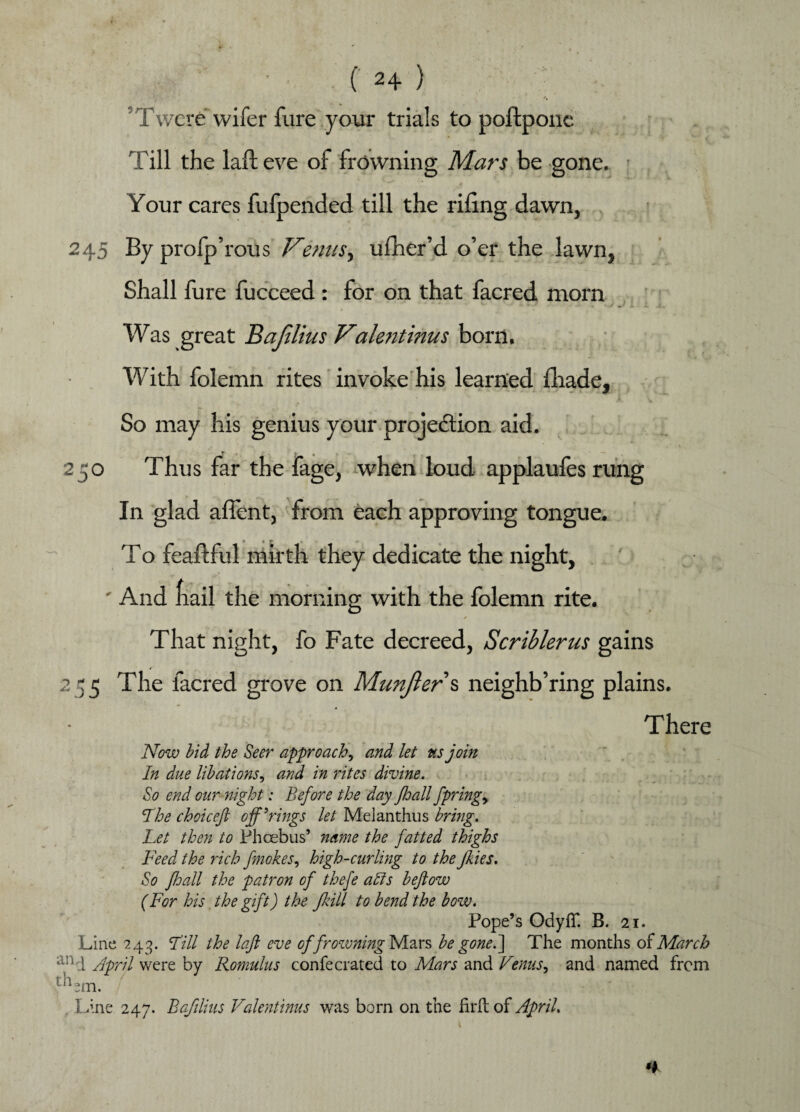 ( 24 )
'Twere wiſer ſure your trials to poſtpone
Till the laſt eve of frowning Mars be gone.
Your cares ſuſpended till the riſing dawn,
245 By proſp'rous Venus, uſher'd o'er the lawn,
Shall ſure ſucceed : for on that ſacred morn
Was great Baſilius Valentinus born.
With ſolemn rites invoke his learned ſhade,
So may his genius your projection aid.
250 Thus far the ſage, when loud applauſes rung
In glad aſſent, from each approving tongue.
To feaſtful mirth they dedicate the night,
And hail the morning with the ſolemn rite.
That night, ſo Fate decreed, Scriblerus gains
255 The ſacred grove on Munſter's neighb'ring plains.
There
Now bid the Seer approach, and let us join
In due libations, and in rites divine.
So end our night : Before the day ſhall ſpring,
The choiceſt off'rings let Melanthus bring.
Let then to Phœbus' name the fatted thighs
Feed the rich ſmokes, high-curling to the ſkies.
So ſhall the patron of theſe acts beſtow
(For his the gift) the ſkill to bend the bow.
Pope's Odyſſ. B. 21.
Line 243. Till the laſt eve of frowning Mars be gone.] The months of March
and April were by Romulus conſecrated to Mars and Venus, and named from
them.
Line 247. Baſilius Valentinus was born on the firſt of April.